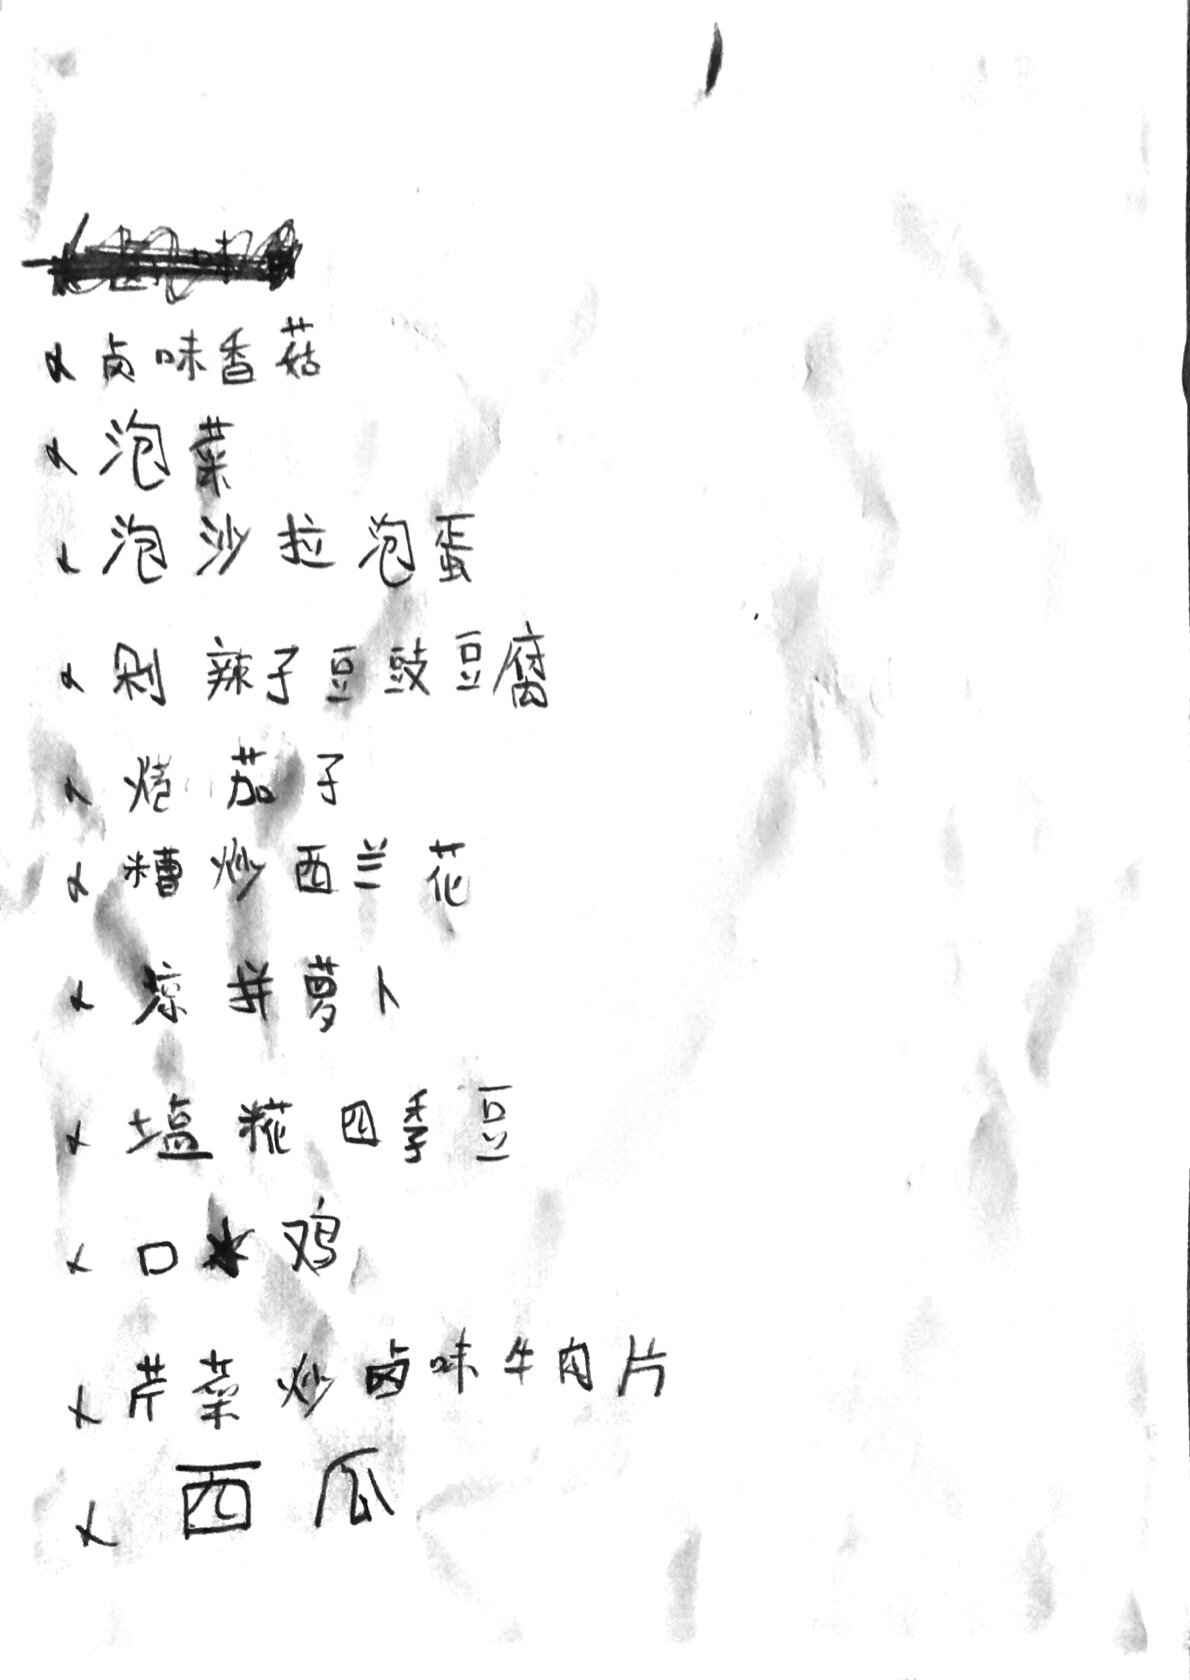 卤味香菇
泡菜
泡沙拉泡蛋
剁辣子豆豉豆腐
烤茄子
糟炒西兰花
凉拌萝卜
塩糀四季豆
口水鸡
芹菜炒卤味牛肉片
西瓜